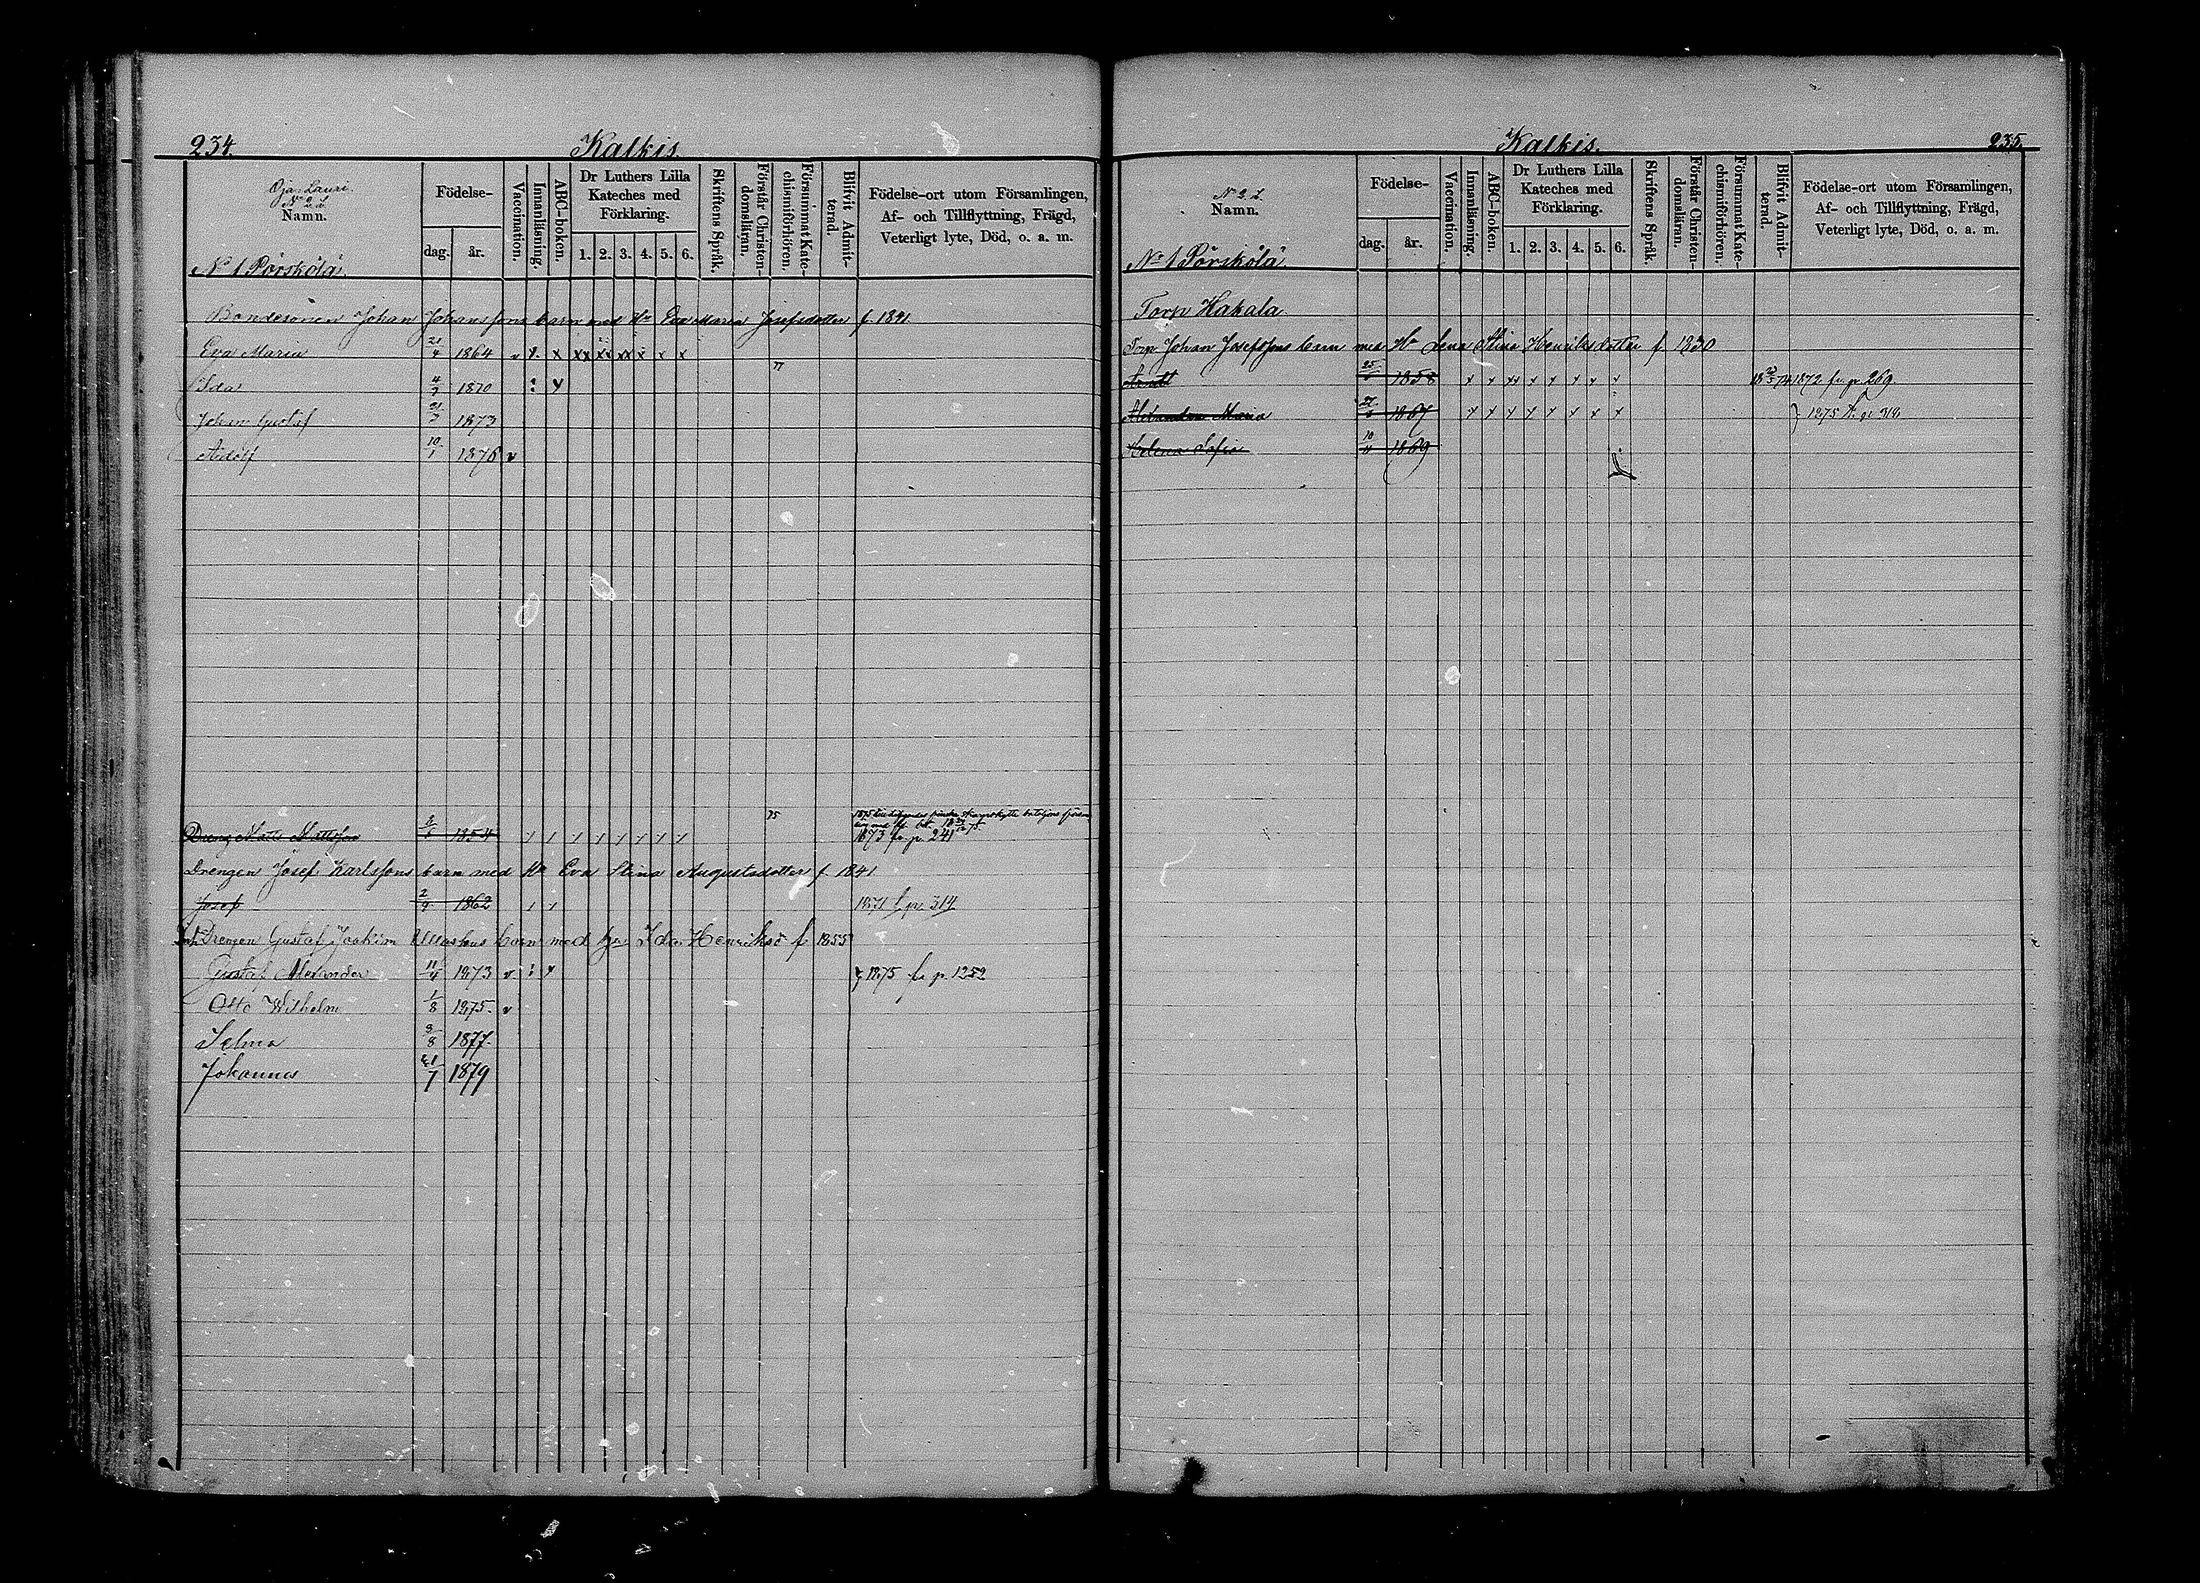 234. Kalkis.
Oja-Lauri
N 2 L
Namn.
Födelse-
dag. år.
Vaccination.
Innanläsning.
ABC-boken.
Dr Luthers Lilla Kateches med Förklaring.
1. 2. 3. 4. 5. 6.
Skriftens Språk.
Förstår Christendomsläran.
Försummat Katechismiförhören.
Blifvit Admitterad.
Födelse-ort utom Församlingen,
Af- och Tillflyttning, Frägd,
Veterligt lyte, Död, o. a. m.
No 1 Pörskölä.
Bondesonen Johan Johanssons barn med Hu Eva Maria Josefsdotter f. 1841
Eva Maria 21/4 1864 v x x xx xx xx x x x
77
Ida 4/7 1870 : x
Johan Gustaf 21/3 1873
Adolf 10/1 1876 v
75
Dreng Matt Mattsson 8/6 1854 / / / / / / / / 1873 fr p. 241
Drengen Josef Karlssons barn med Hu Eva Stina Augustadotter f. 1841
Josef 2/9 1862 / / 1871 t. p. 314
Drengen Gustaf Joakim barn med hu Ida Henriksd f. 1855
Gustaf Alexander 11/4 1873 v : x 1875 fr p. 1252
Otto Wilhelm 1/8 1875. v
Selma 9/8 1877.
Johannes 21/7 1879
Kalkis. 235.
N 2 L
Namn.
Födelse-
dag. år.
Vaccination.
Innanläsning.
ABC-boken.
Dr Luthers Lilla Kateches med Förklaring.
1. 2. 3. 4. 5. 6.
Skriftens Språk.
Förstår Christendomsläran.
Försummat Katechismiförhören.
Blifvit Admitterad.
Födelse-ort utom Församlingen,
Af- och Tillflyttning, Frägd,
Veterligt lyte, Död, o. a. m.
No 1 Pörskölä.
Torp Hakala
Torp. Johan Josefssons barn med Hu Lena Stina Henriksdotter f. 1830
1858 x x xx x x x x x 1872 fr. p. 269
Alexandra Maria 1867 x x x x x x x x } 1875 t. p. 318
Helena Sofia 10/11 1869